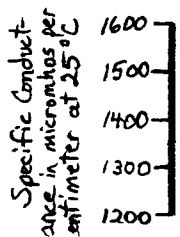 Specific Conduct-
ance in micromhos per
centimeter at 25°C
1600
1500
1400
1300
1200